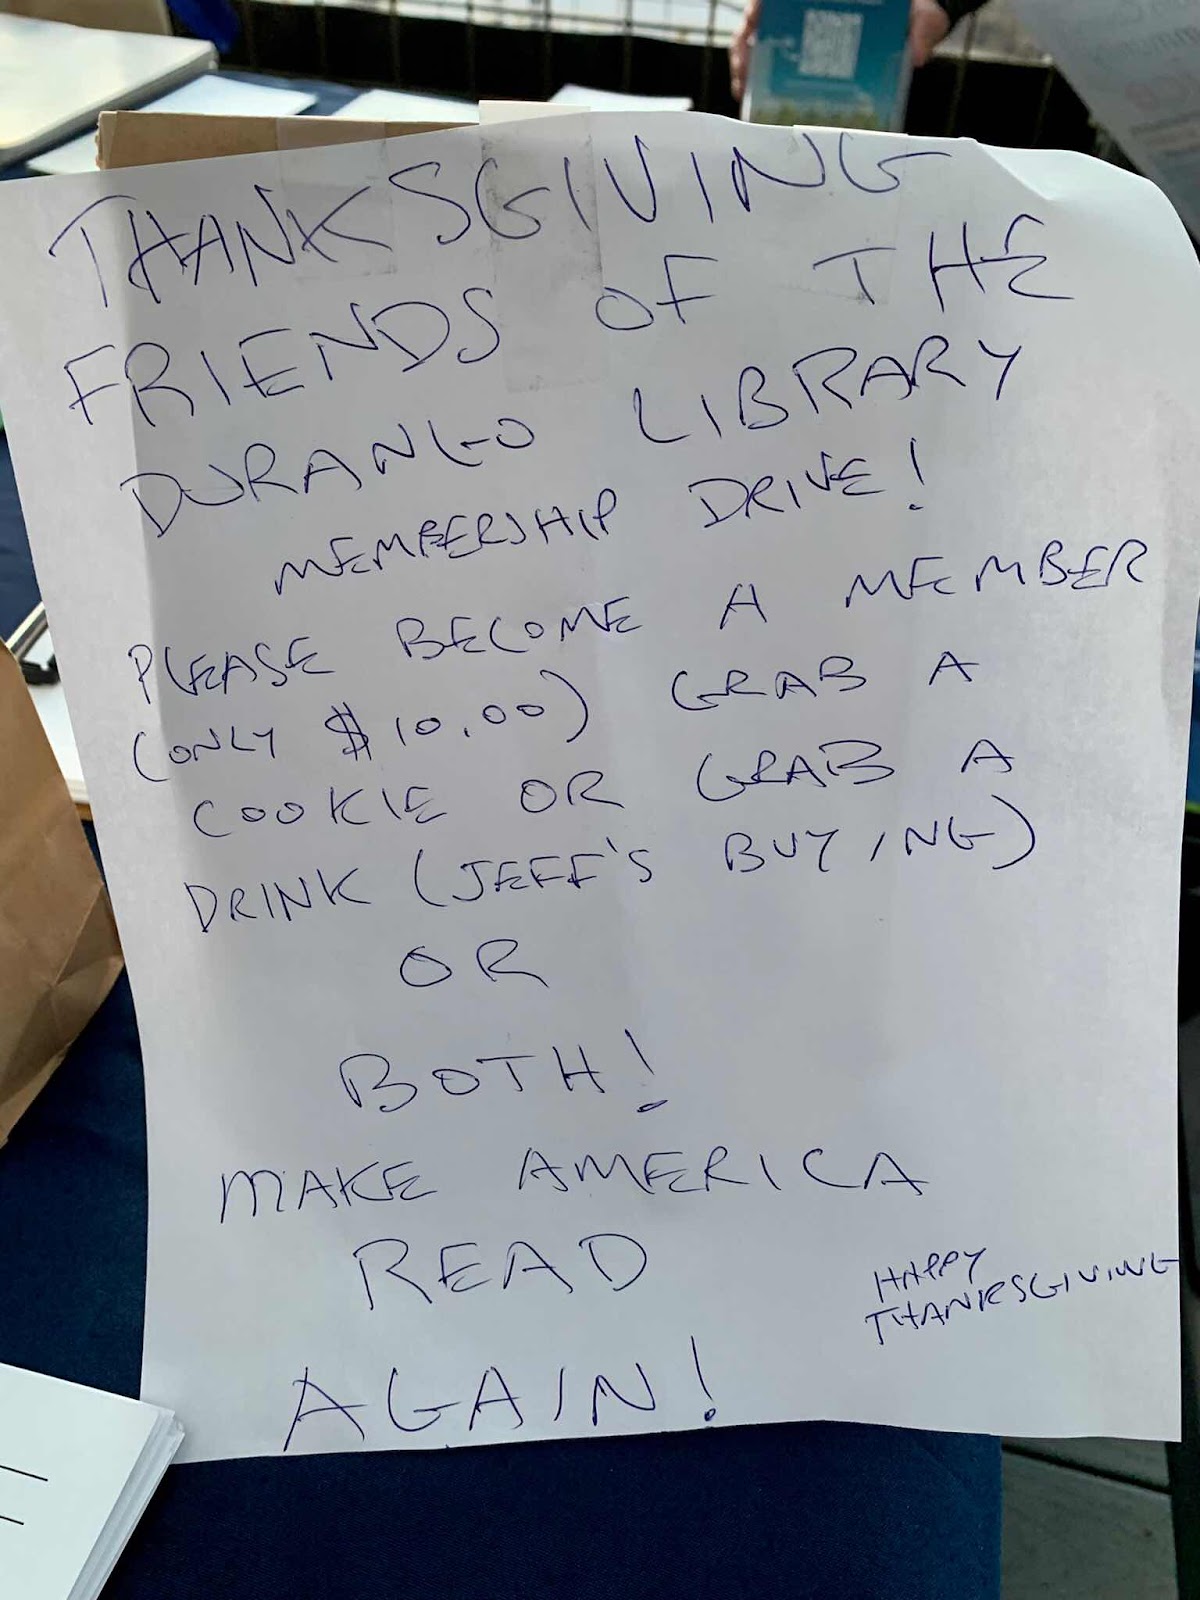 THANKSGIVING
FRIENDS OF THE
DURANGO LIBRARY
MEMBERSHIP DRIVE!
PLEASE BECOME A MEMBER
(ONLY $10.00) GRAB A
COOKIE OR GRAB A
DRINK (JEFF'S BUYING)
OR
BOTH!
MAKE AMERICA
READ
AGAIN!
HAPPY
THANKSGIVING